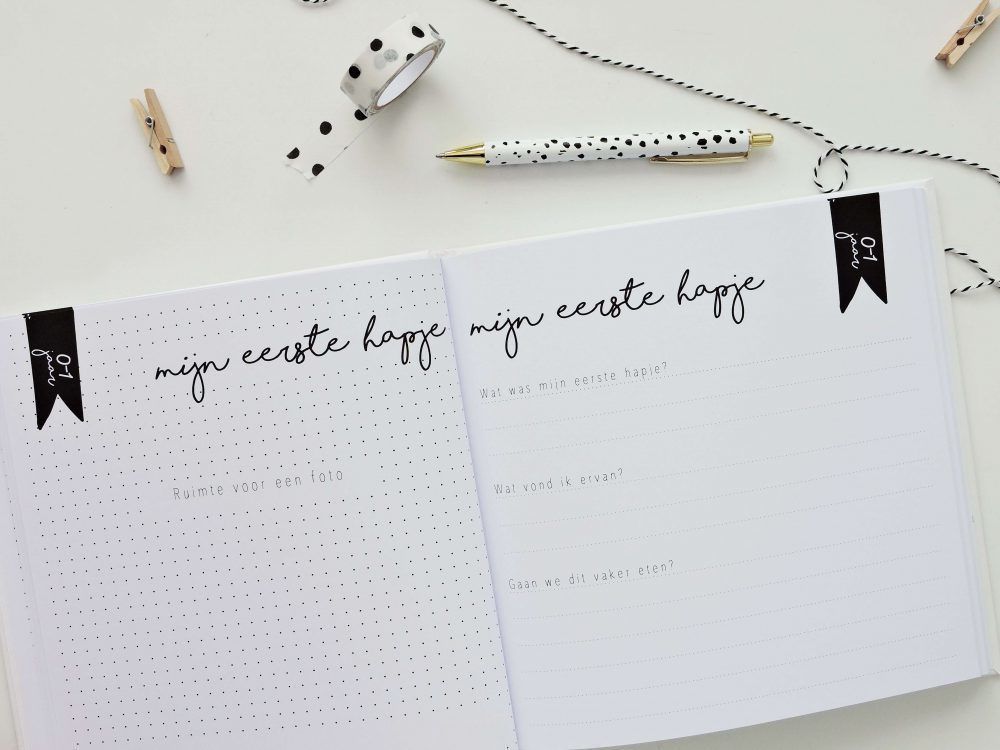 0-1
jaar
mijn eerste hapje
Ruimte voor een foto
0-1
jaar
mijn eerste hapje
Wat was mijn eerste hapje?
Wat vond ik ervan?
Gaan we dit vaker eten?